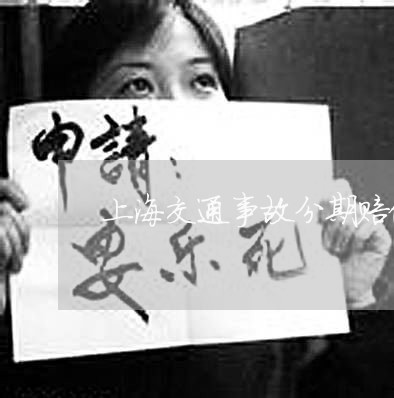 申請：
要乐死
上海交通事故分期赔